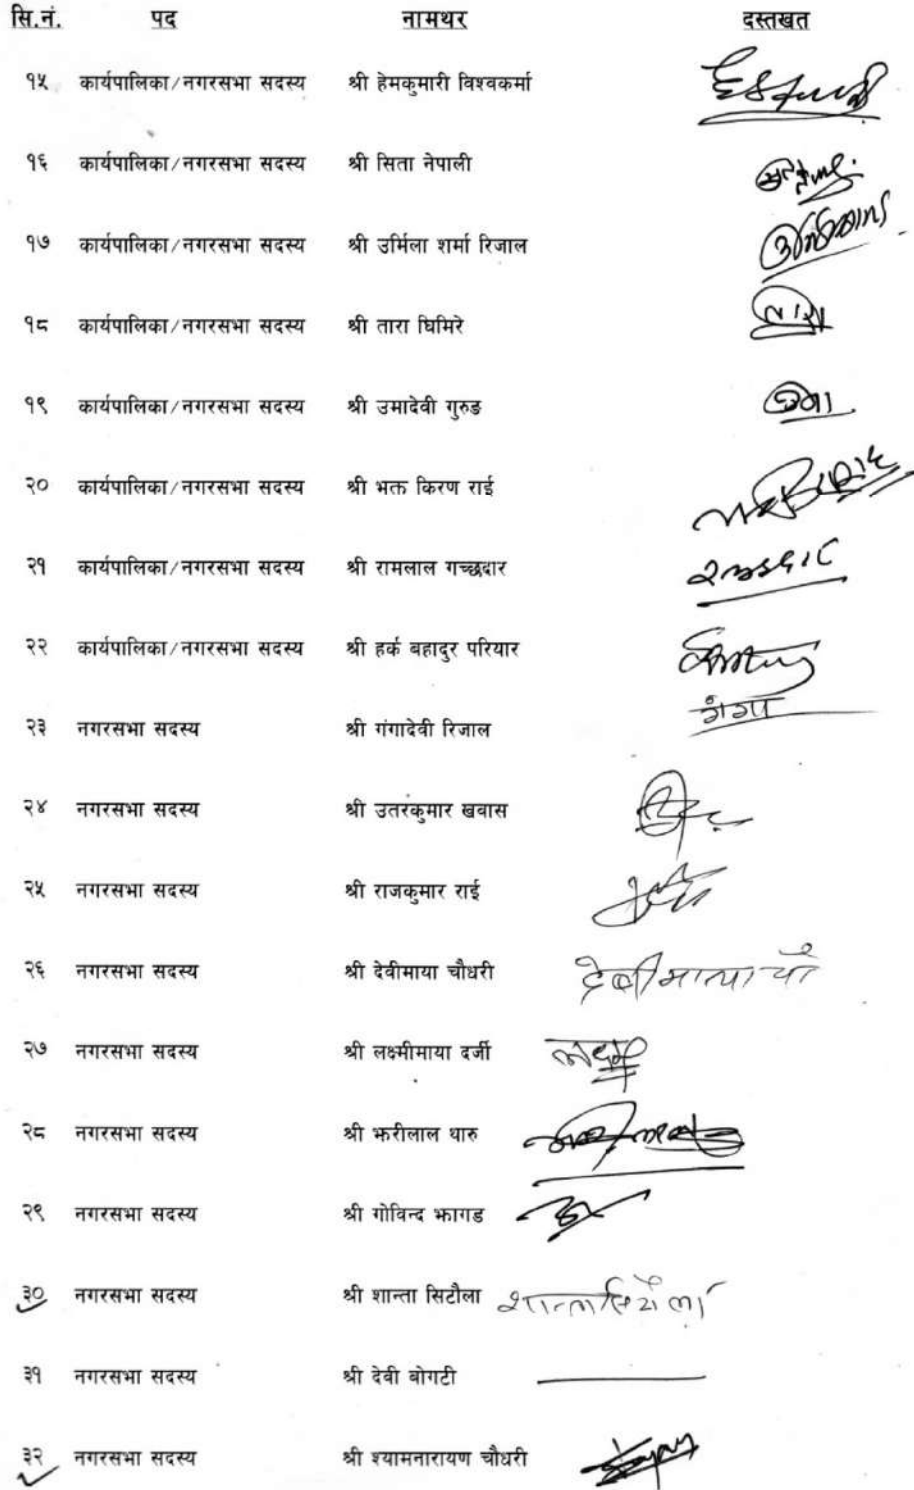 सि.नं. पद नामथर दस्तखत
१५ कार्यपालिका/नगरसभा सदस्य श्री हेमकुमारी विश्वकर्मा
१६ कार्यपालिका/नगरसभा सदस्य श्री सिता नेपाली
१७ कार्यपालिका/नगरसभा सदस्य श्री उर्मिला शर्मा रिजाल
१८ कार्यपालिका/नगरसभा सदस्य श्री तारा घिमिरे तारा
१९ कार्यपालिका/नगरसभा सदस्य श्री उमादेवी गुरुङ
२० कार्यपालिका/नगरसभा सदस्य श्री भक्त किरण राई
२१ कार्यपालिका/नगरसभा सदस्य श्री रामलाल गच्छदार
२२ कार्यपालिका/नगरसभा सदस्य श्री हर्क बहादुर परियार
२३ नगरसभा सदस्य श्री गंगादेवी रिजाल गंगा
२४ नगरसभा सदस्य श्री उतरकुमार खवास
२५ नगरसभा सदस्य श्री राजकुमार राई
२६ नगरसभा सदस्य श्री देवीमाया चौधरी देवीमाया चौ
२७ नगरसभा सदस्य श्री लक्ष्मीमाया दर्जी
२८ नगरसभा सदस्य श्री झरीलाल थारु
२९ नगरसभा सदस्य श्री गोविन्द झागड
३० नगरसभा सदस्य श्री शान्ता सिटौला शान्ता सिटौला
३१ नगरसभा सदस्य श्री देवी बोगटी
३२ नगरसभा सदस्य श्री श्यामनारायण चौधरी